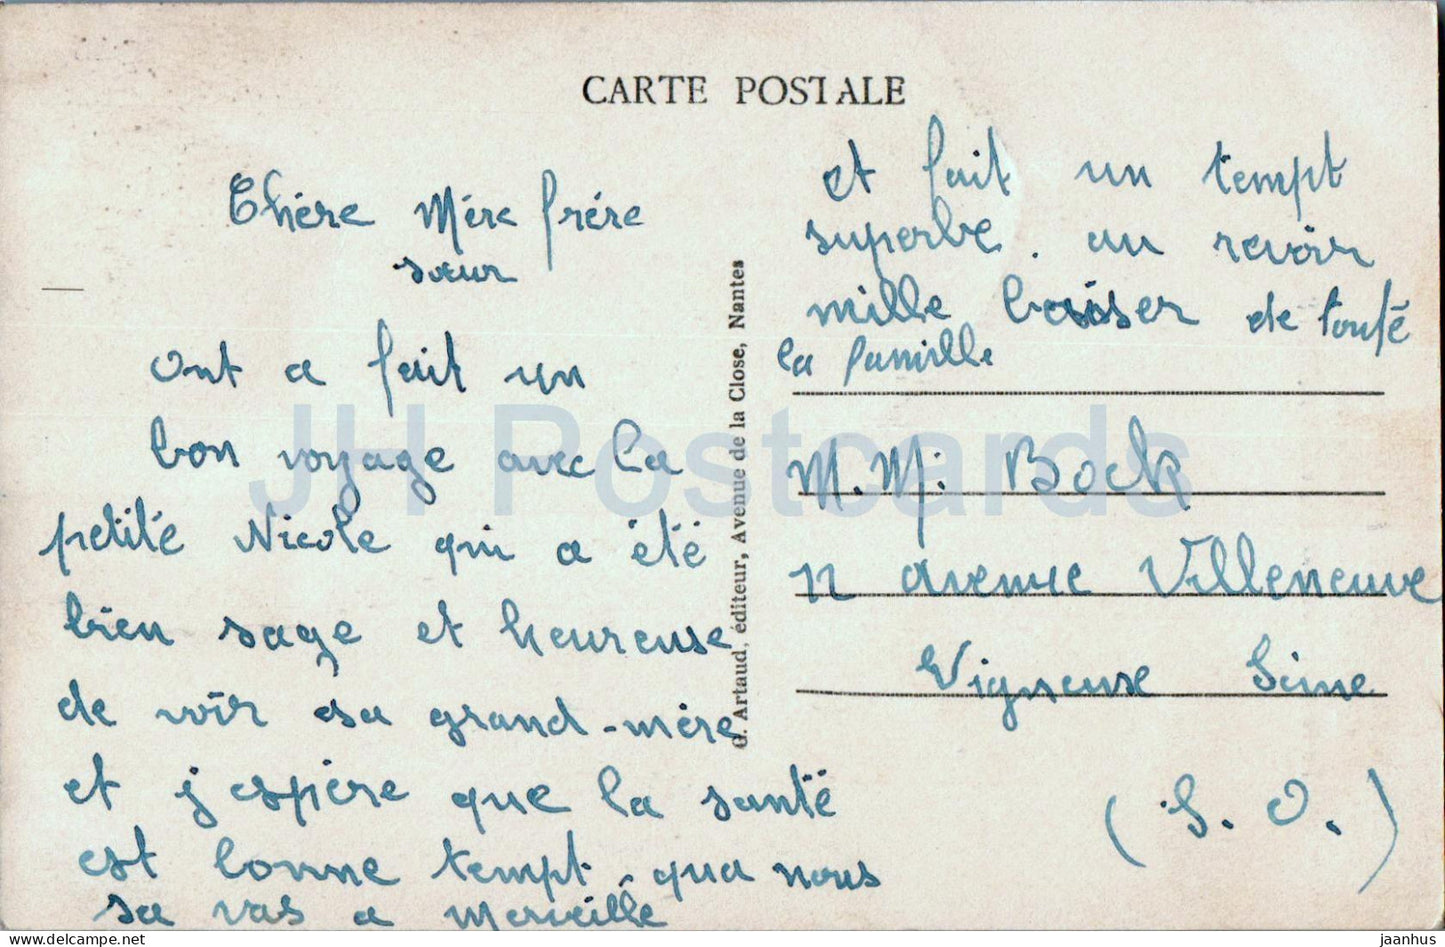 CARTE POSTALE
Chère Mère frère
sœur
Ont a fait un
bon voyage avec la
petite Nicole qui a été
bien sage et heureuse
de voir sa grand-mère
et j espère que la santé
est bonne tempt qua nous
sa vas a merveille
et fait un tempt
superbe. au revoir
mille baiser de toute
la famille
M. M. Bock
12 avenue Villeneuve
Vigneux Seine
(S. O.)
G. Artaud, éditeur, Avenue de la Close, Nantes
JH Postcards
delcampe.net
jaanhus